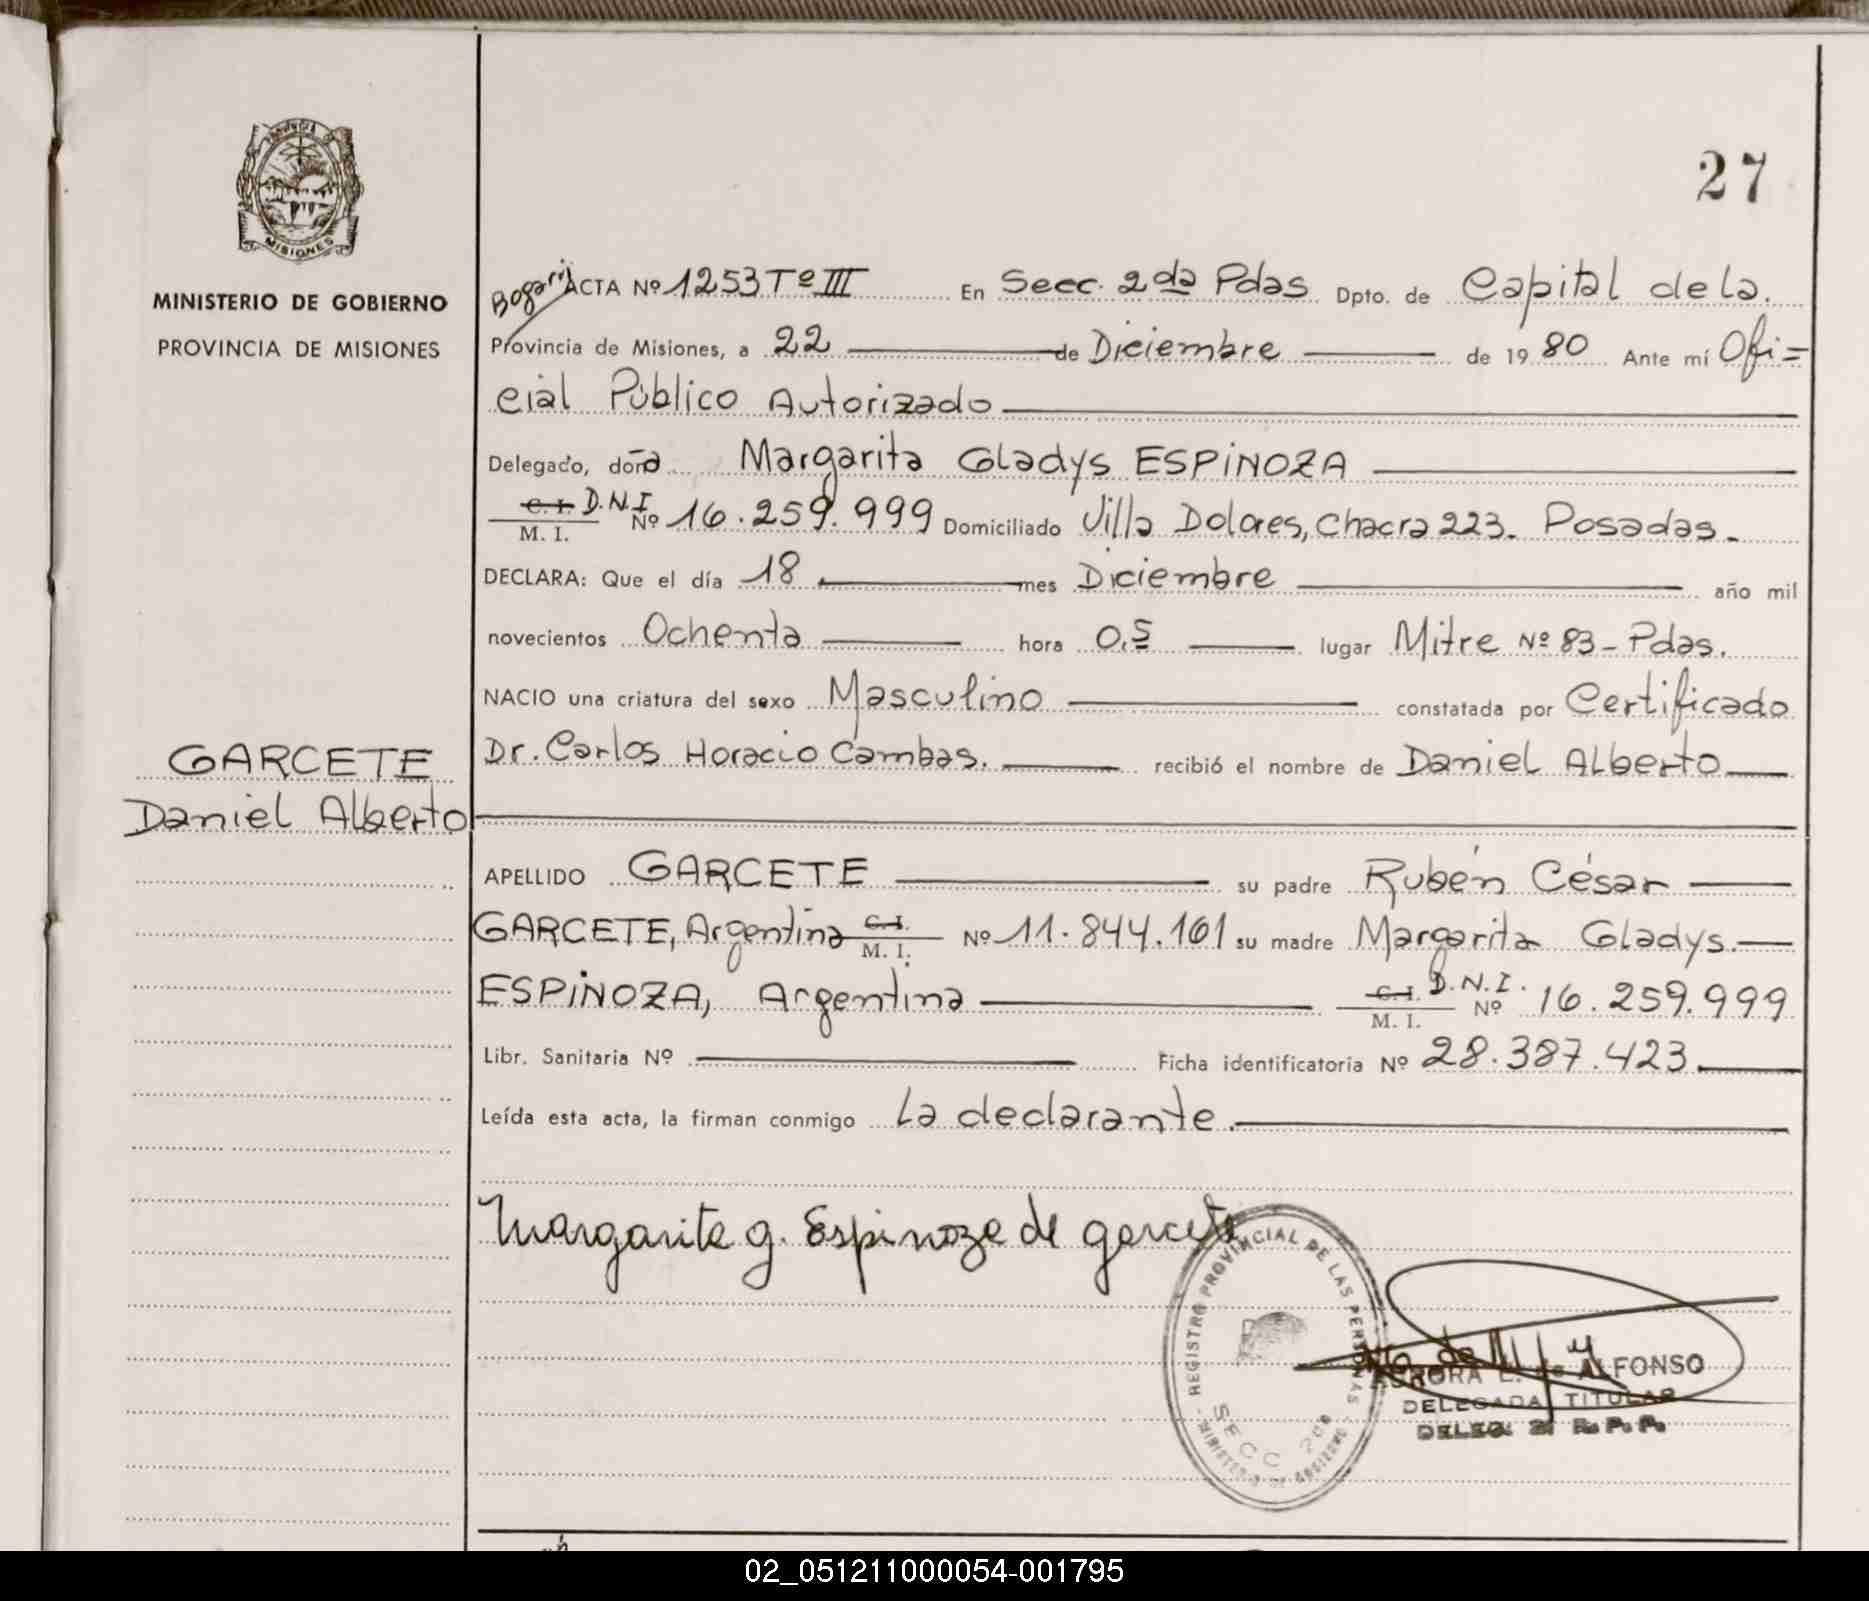 27
PROVINCIA DE
MISIONES
MINISTERIO DE GOBIERNO
PROVINCIA DE MISIONES
ACTA Nº 1253 Tº III En Secc. 2da Pdas Dpto. de Capital de la
Provincia de Misiones, a 22 de Diciembre de 1980 Ante mí Ofi=
cial Público Autorizado
Delegado, doña Margarita Gladys ESPINOZA
C. I. D.N.I
M. I. Nº 16.259.999 Domiciliado Villa Dolores, Chacra 223. Posadas.
DECLARA: Que el día 18 mes Diciembre año mil
novecientos Ochenta hora 0.5 lugar Mitre Nº 83 - Pdas.
NACIO una criatura del sexo Masculino constatada por Certificado
Dr. Carlos Horacio Cambas. recibió el nombre de Daniel Alberto
GARCETE
Daniel Alberto
APELLIDO GARCETE su padre Rubén César
GARCETE, Argentina C. I. M. I. Nº 11.844.161 su madre Margarita Gladys
ESPINOZA, Argentina C. I. M. I. D.N.I. Nº 16.259.999
Libr. Sanitaria Nº Ficha identificatoria Nº 28.387.423
Leída esta acta, la firman conmigo La declarante.
Margarita G. Espinoza de Garcete
REGISTRO PROVINCIAL DE LAS PERSONAS
MINISTERIO DE GOBIERNO
SECC 2da
AURORA L. de ALFONSO
DELEGADA TITULAR
DELEG. 2ª R. P. P.
02_051211000054-001795